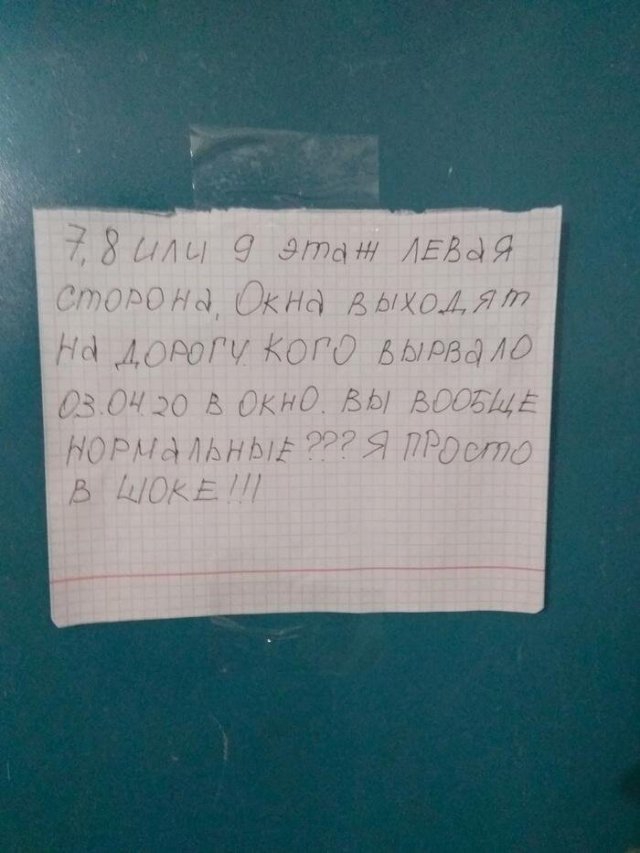 7, 8 или 9 этаж ЛЕВАЯ
СТОРОНА, ОКНА ВЫХОДЯТ
НА ДОРОГУ. КОГО ВЫРВАЛО
03.04.20 В ОКНО. ВЫ ВООБЩЕ
НОРМАЛЬНЫЕ??? Я ПРОСТО
В ШОКЕ!!!